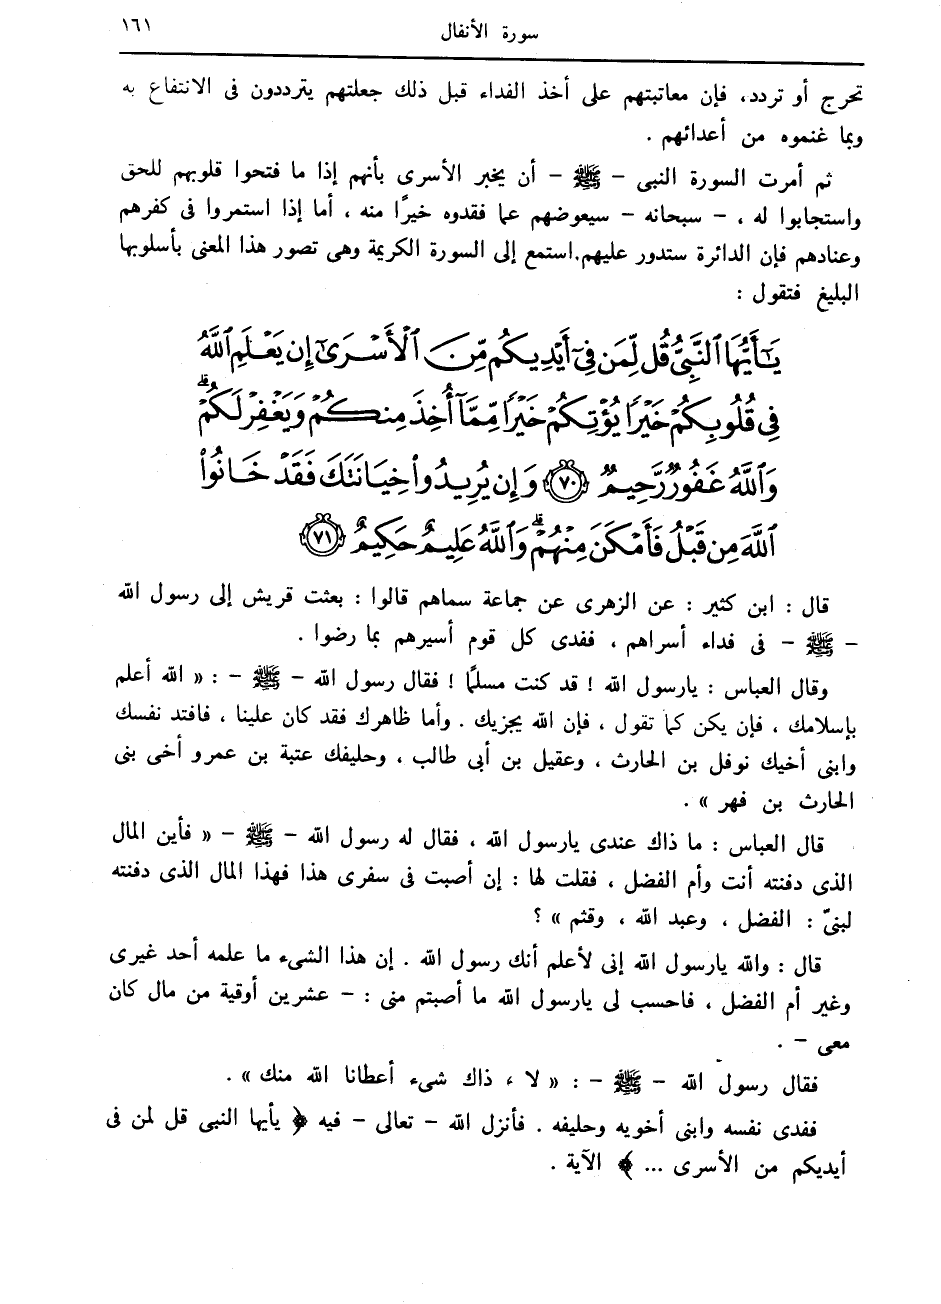 سورة الأنفال ١٦١
تحرج أو تردد، فإن معاتبتهم على أخذ الفداء قبل ذلك جعلتهم يترددون فى الانتفاع به
وبما غنموه من أعدائهم .
ثم أمرت السورة النبى – ﷺ – أن يخبر الأسرى بأنهم إذا ما فتحوا قلوبهم للحق
واستجابوا له ، – سبحانه – سيعوضهم عما فقدوه خيرًا منه ، أما إذا استمروا فى كفرهم
وعنادهم فإن الدائرة ستدور عليهم.استمع إلى السورة الكريمة وهى تصور هذا المعنى بأسلوبها
البليغ فتقول :
يَٰٓأَيُّهَا ٱلنَّبِىُّ قُل لِّمَن فِىٓ أَيْدِيكُم مِّنَ ٱلْأَسْرَىٰٓ إِن يَعْلَمِ ٱللَّهُ
فِى قُلُوبِكُمْ خَيْرًا يُؤْتِكُمْ خَيْرًا مِّمَّآ أُخِذَ مِنكُمْ وَيَغْفِرْ لَكُمْ ۗ
وَٱللَّهُ غَفُورٌ رَّحِيمٌ ﴿٧٠﴾ وَإِن يُرِيدُوا۟ خِيَانَتَكَ فَقَدْ خَانُوا۟
ٱللَّهَ مِن قَبْلُ فَأَمْكَنَ مِنْهُمْ ۗ وَٱللَّهُ عَلِيمٌ حَكِيمٌ ﴿٧١﴾
قال : ابن كثير : عن الزهرى عن جماعة سماهم قالوا : بعثت قريش إلى رسول الله
– ﷺ – فى فداء أسراهم ، ففدى كل قوم أسيرهم بما رضوا .
وقال العباس : يارسول الله ! قد كنت مسلمًا ! فقال رسول الله – ﷺ – : « الله أعلم
بإسلامك ، فإن يكن كما تقول ، فإن الله يجزيك . وأما ظاهرك فقد كان علينا ، فافتد نفسك
وابنى أخيك نوفل بن الحارث ، وعقيل بن أبى طالب ، وحليفك عتبة بن عمرو أخى بنى
الحارث بن فهر » .
قال العباس : ما ذاك عندى يارسول الله ، فقال له رسول الله – ﷺ – « فأين المال
الذى دفنته أنت وأم الفضل ، فقلت لها : إن أصبت فى سفرى هذا فهذا المال الذى دفنته
لبنىّ : الفضل ، وعبد الله ، وقثم » ؟
قال : والله يارسول الله إنى لأعلم أنك رسول الله . إن هذا الشىء ما علمه أحد غيرى
وغير أم الفضل ، فاحسب لى يارسول الله ما أصبتم منى : – عشرين أوقية من مال كان
معى – .
فقال رسول الله – ﷺ – : « لا ، ذاك شىء أعطانا الله منك » .
ففدى نفسه وابنى أخويه وحليفه . فأنزل الله – تعالى – فيه ﴿ يأيها النبى قل لمن فى
أيديكم من الأسرى ... ﴾ الآية .